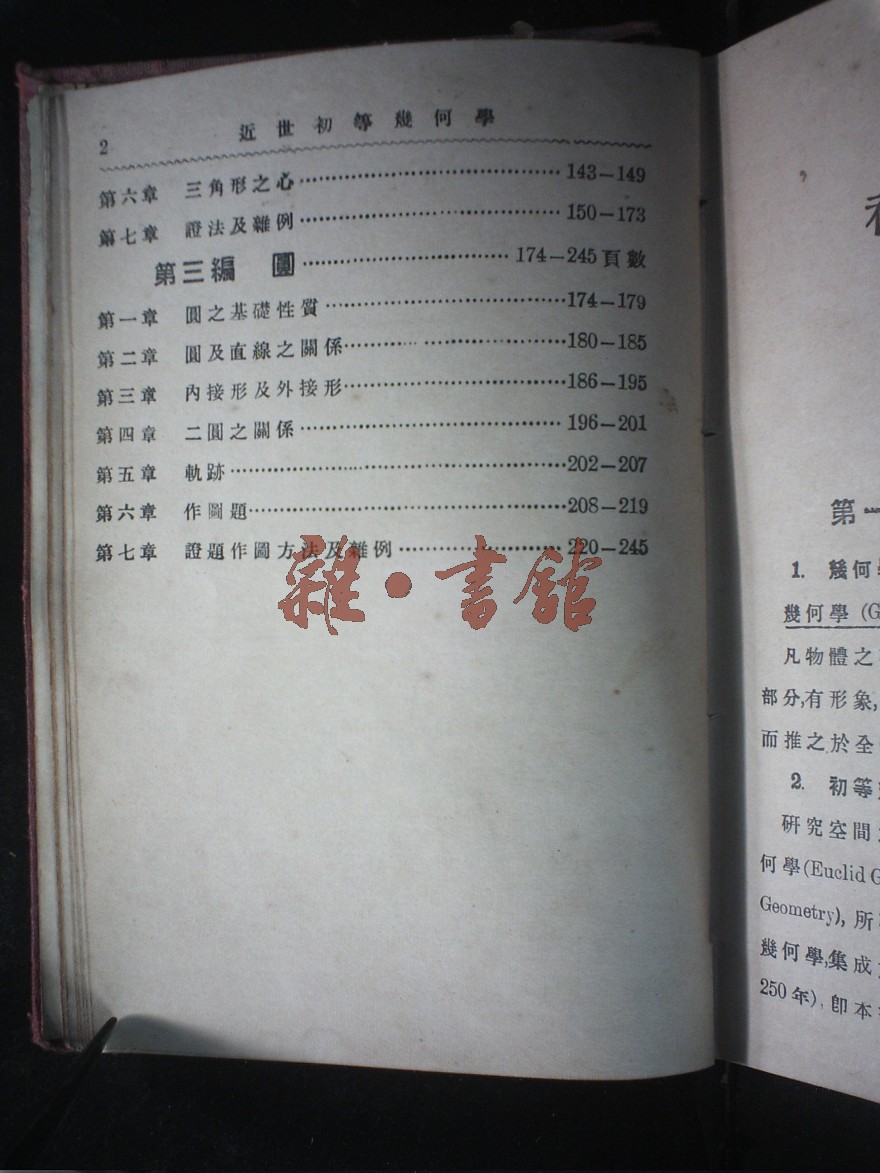 2 近世初等幾何學
第六章 三角形之心……143—149
第七章 證法及雜例……150—173
第三編 圓……174—245頁數
第一章 圓之基礎性質……174—179
第二章 圓及直線之關係……180—185
第三章 內接形及外接形……186—195
第四章 二圓之關係……196—201
第五章 軌跡……202—207
第六章 作圖題……208—219
第七章 證題作圖方法及雜例……220—245
雜·書館
第一
1. 幾何學
幾何學 (G
凡物體之
部分,有形象,
而推之於全
2. 初等
研究空間
何學(Euclid G
Geometry), 所
幾何學,集成
250年), 卽本